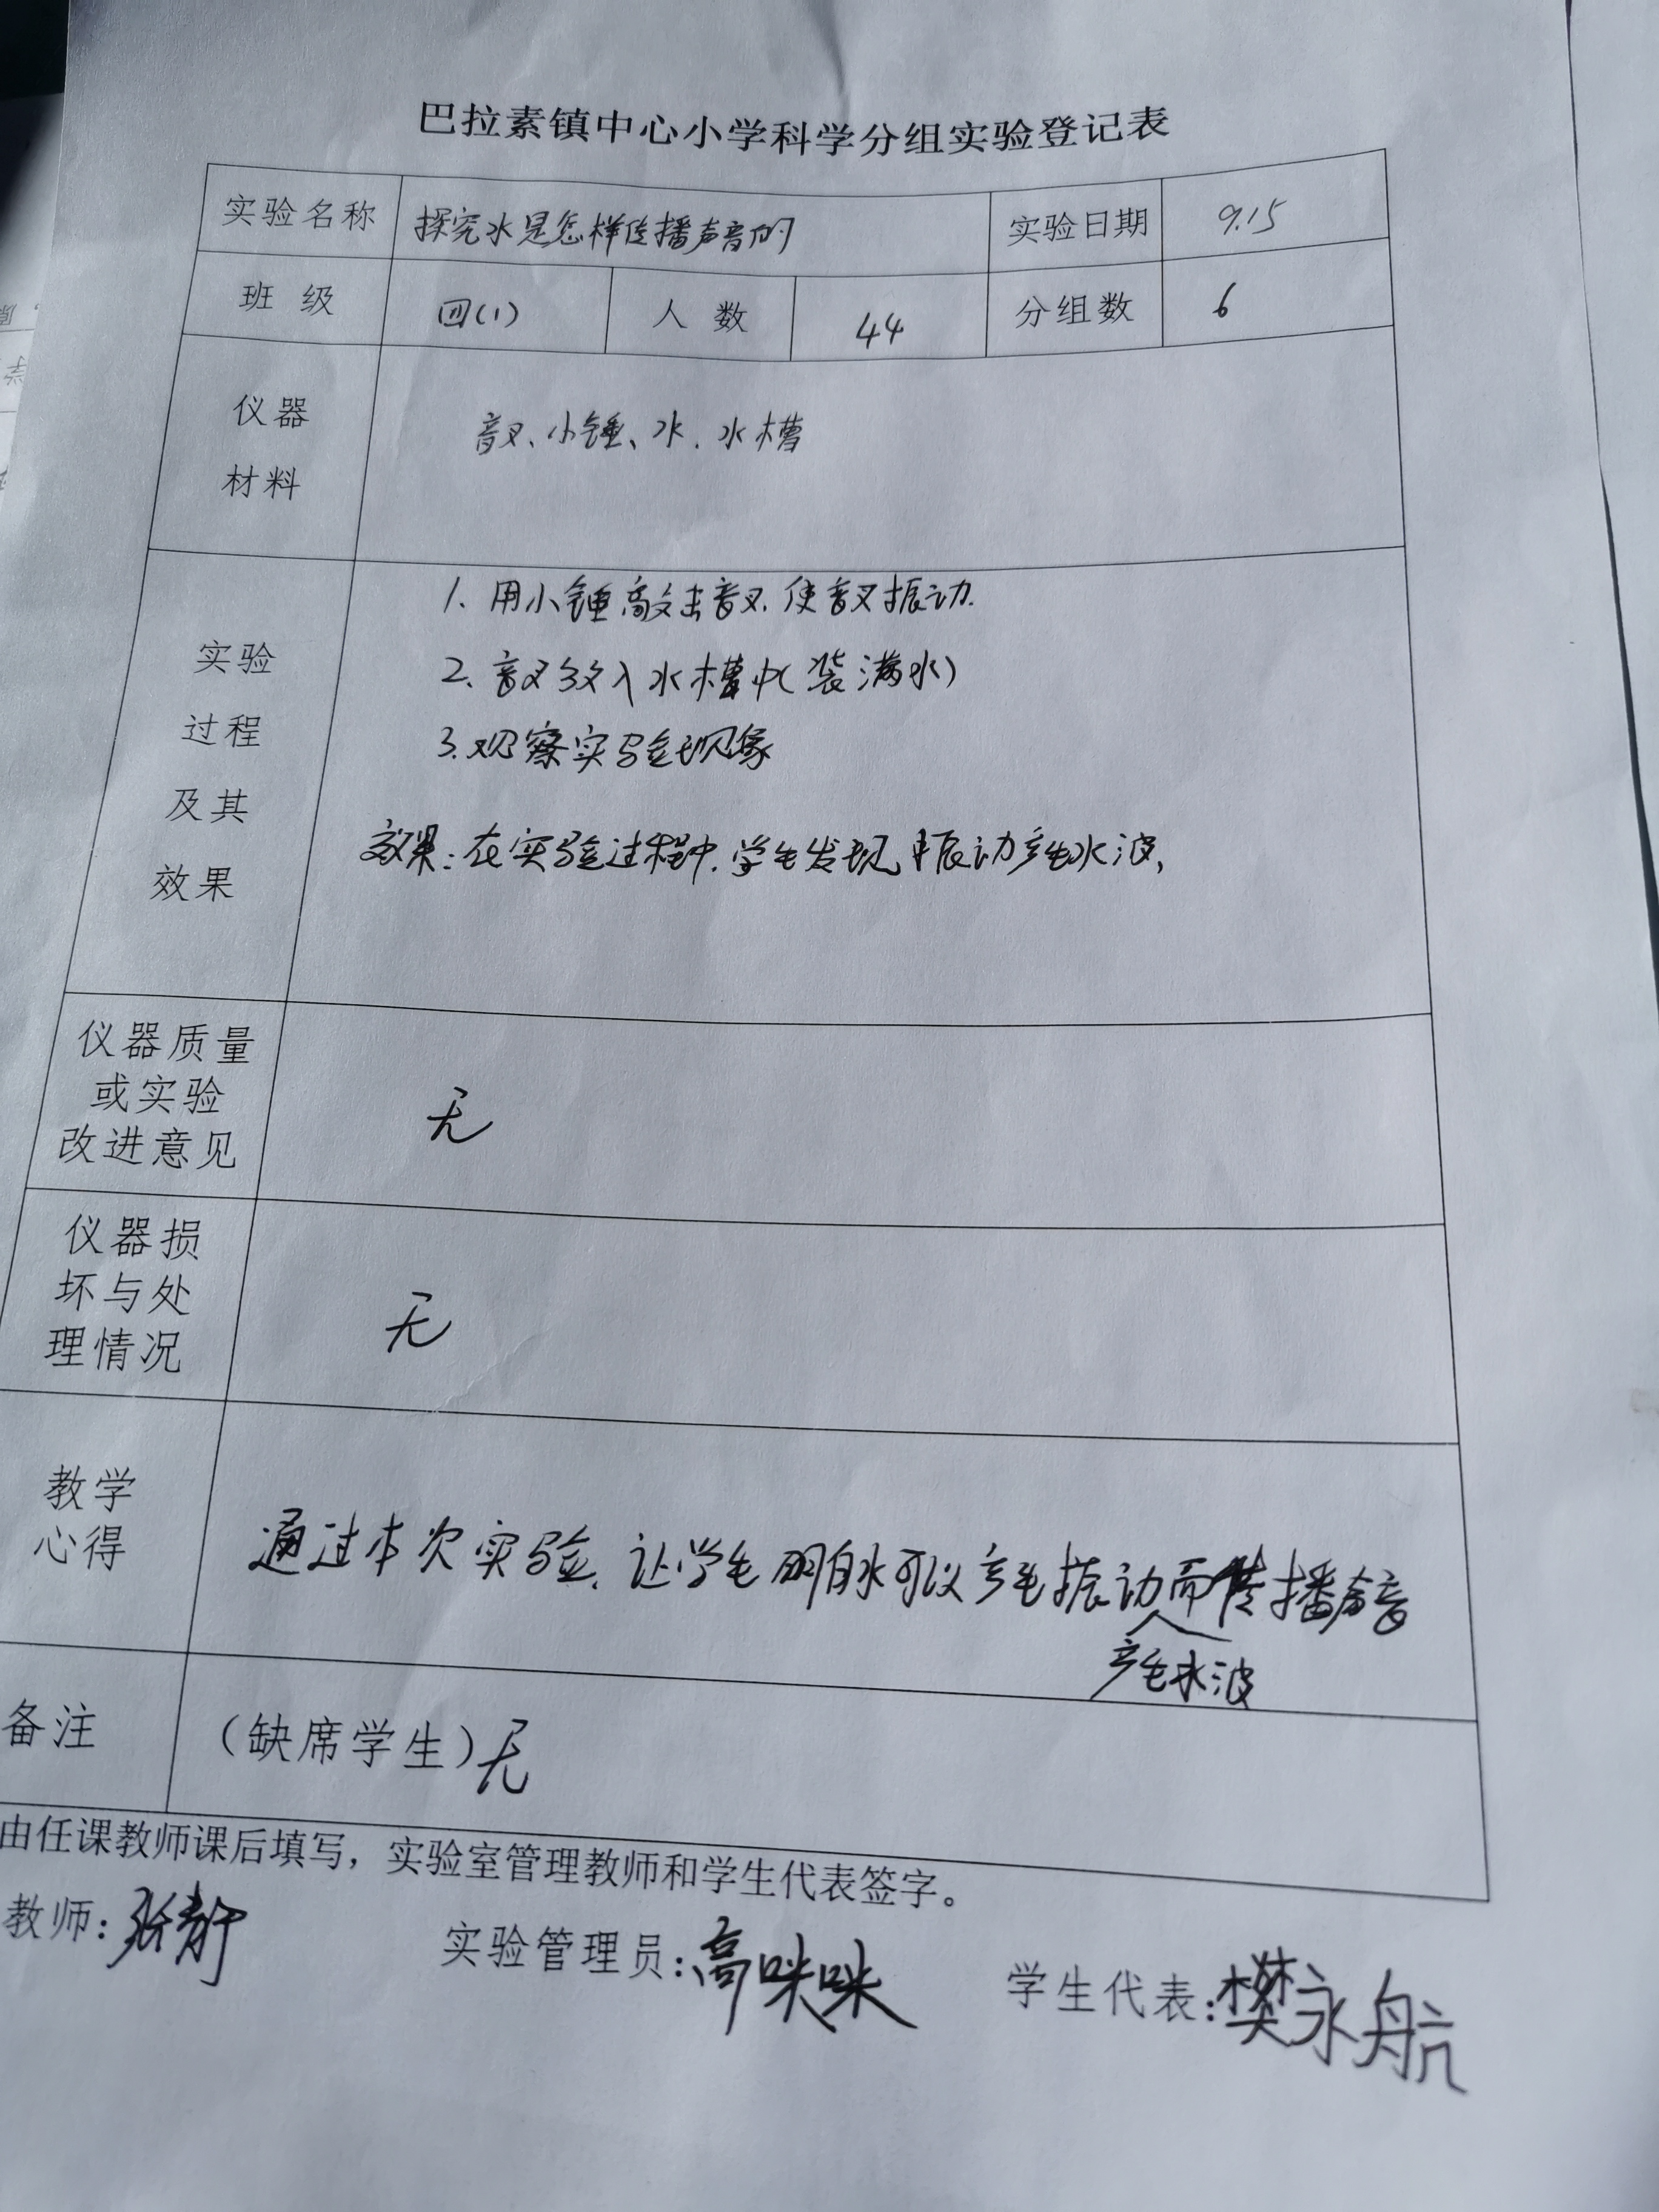 巴拉素镇中心小学科学分组实验登记表
实验名称 探究水是怎样传播声音的 实验日期 9.15
班 级 四(1) 人 数 44 分组数 6
仪器
材料
音叉、小锤、水、水槽
实验
过程
及其
效果
1、用小锤敲击音叉,使音叉振动.
2、音叉放入水槽中(装满水)
3.观察实验现象
效果:在实验过程中,学生发现振动产生水波,
仪器质量
或实验
改进意见
无
仪器损
坏与处
理情况
无
教学
心得
通过本次实验,让学生明白水可以产生振动而传播声音
产生水波
备注 (缺席学生)无
由任课教师课后填写,实验室管理教师和学生代表签字。
教师: 实验管理员:高咪咪 学生代表:樊永航